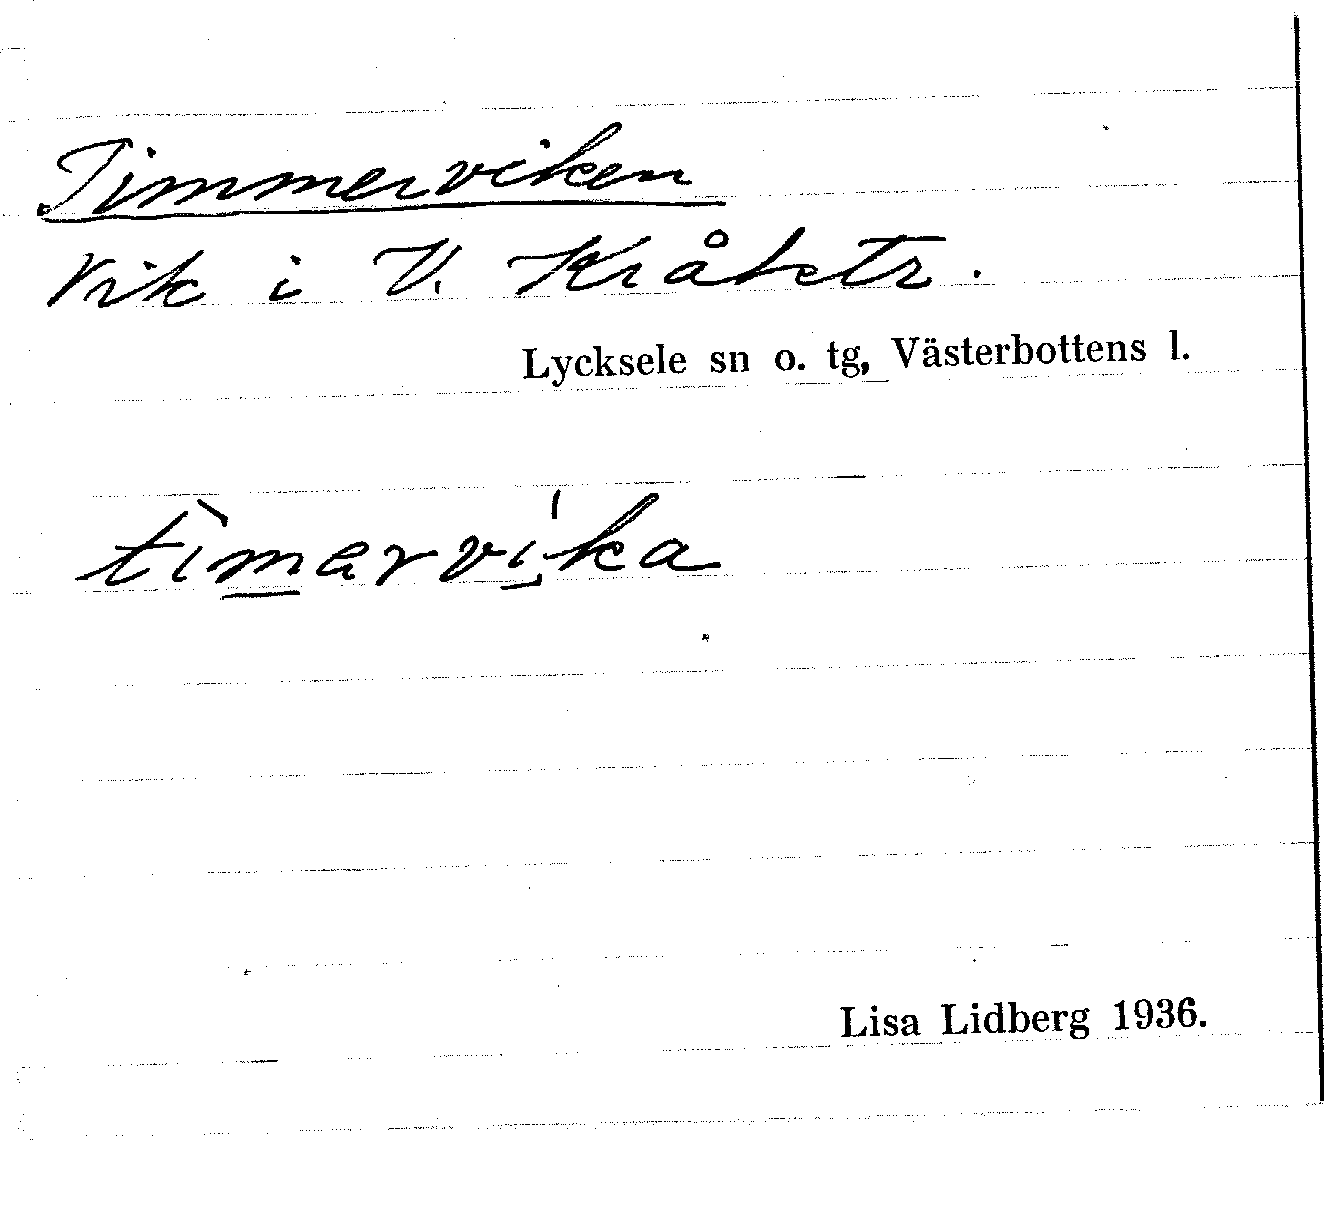 Timmerviken
Vik i V. Kråketr.
Lycksele sn o. tg, Västerbottens l.
tìmarvi̱ka
Lisa Lidberg 1936.